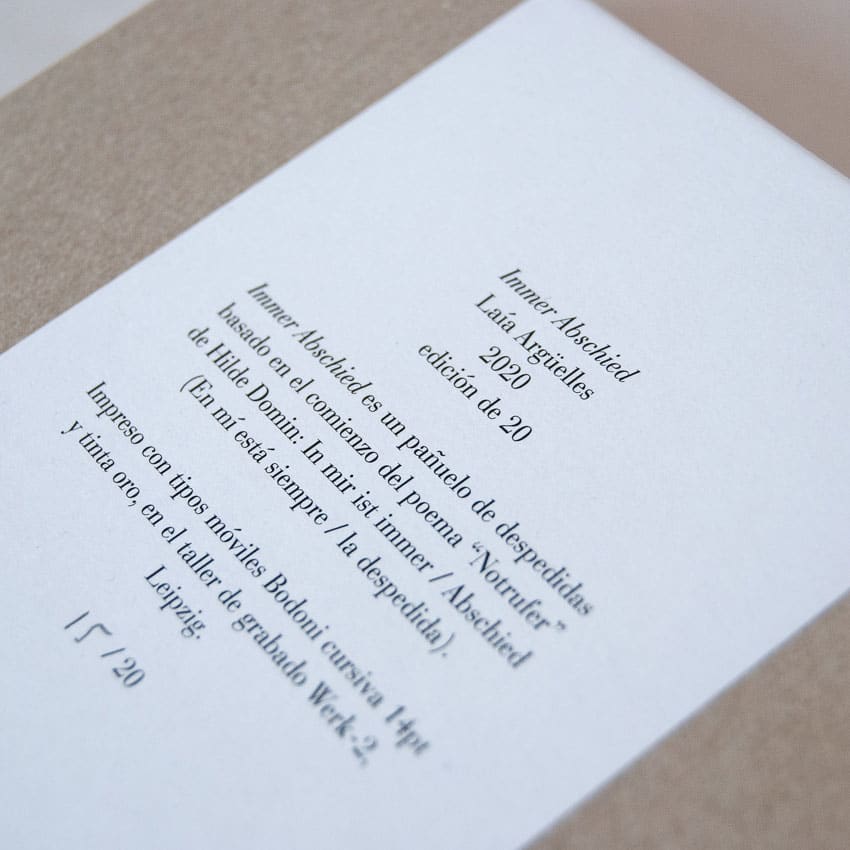 Immer Abschied
Laía Argüelles
2020
edición de 20
Immer Abschied es un pañuelo de despedidas
basado en el comienzo del poema “Notrufer”
de Hilde Domin: In mir ist immer / Abschied
(En mí está siempre / la despedida).
Impreso con tipos móviles Bodoni cursiva 14pt
y tinta oro, en el taller de grabado Werk-2,
Leipzig.
15 / 20